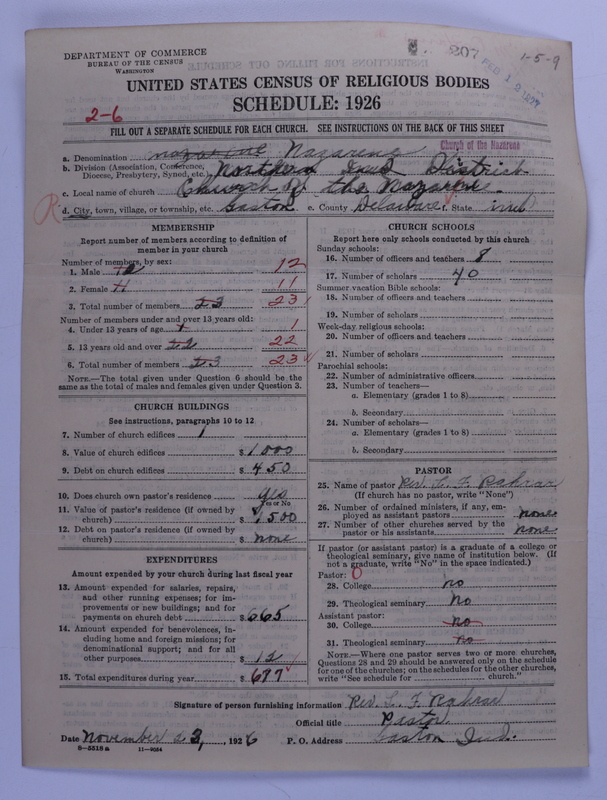 DEPARTMENT OF COMMERCE
BUREAU OF THE CENSUS
WASHINGTON
207
1-5-9
FEB 12 1927
UNITED STATES CENSUS OF RELIGIOUS BODIES
SCHEDULE: 1926
2-6
FILL OUT A SEPARATE SCHEDULE FOR EACH CHURCH. SEE INSTRUCTIONS ON THE BACK OF THIS SHEET
Church of the Nazarene
a. Denomination Nazarene
b. Division (Association, Conference, Diocese, Presbytery, Synod, etc.) Northern Ind District
c. Local name of church Church of the Nazarene
R
d. City, town, village, or township, etc. Gaston e. County Delaware f. State
MEMBERSHIP
Report number of members according to definition of member in your church
Number of members, by sex:
1. Male 12 12
2. Female 11 11
3. Total number of members 23 23
Number of members under and over 13 years old:
4. Under 13 years of age 1 1
5. 13 years old and over 22 22
6. Total number of members 23 23
NOTE.—The total given under Question 6 should be the same as the total of males and females given under Question 3.
CHURCH BUILDINGS
See instructions, paragraphs 10 to 12
7. Number of church edifices 1
8. Value of church edifices $ 1000
9. Debt on church edifices $ 450
10. Does church own pastor's residence yes
Yes or No
11. Value of pastor's residence (if owned by church) $ 1500
12. Debt on pastor's residence (if owned by church) $ none
EXPENDITURES
Amount expended by your church during last fiscal year
13. Amount expended for salaries, repairs, and other running expenses; for improvements or new buildings; and for payments on church debt $ 665
14. Amount expended for benevolences, including home and foreign missions; for denominational support; and for all other purposes $ 12
15. Total expenditures during year $ 677
CHURCH SCHOOLS
Report here only schools conducted by this church
Sunday schools:
16. Number of officers and teachers 8
17. Number of scholars 40
Summer vacation Bible schools:
18. Number of officers and teachers
19. Number of scholars
Week-day religious schools:
20. Number of officers and teachers
21. Number of scholars
Parochial schools:
22. Number of administrative officers
23. Number of teachers—
a. Elementary (grades 1 to 8)
b. Secondary
24. Number of scholars—
a. Elementary (grades 1 to 8)
b. Secondary
PASTOR
25. Name of pastor Rev. C. F. Rahrar
(If church has no pastor, write "None")
26. Number of ordained ministers, if any, employed as assistant pastors none
27. Number of other churches served by the pastor or his assistants none
If pastor (or assistant pastor) is a graduate of a college or theological seminary, give name of institution below. (If not a graduate, write "No" in the space indicated.)
Pastor: 0
28. College no
29. Theological seminary no
Assistant pastor:
30. College no
31. Theological seminary no
NOTE.—Where one pastor serves two or more churches, Questions 28 and 29 should be answered only on the schedule for one of the churches; on the schedules for the other churches, write "See schedule for church."
Signature of person furnishing information Rev. C. F. Rahrar
Official title Pastor
Date November 23, 1926 P. O. Address Gaston Ind.
6—5518a 11—9054